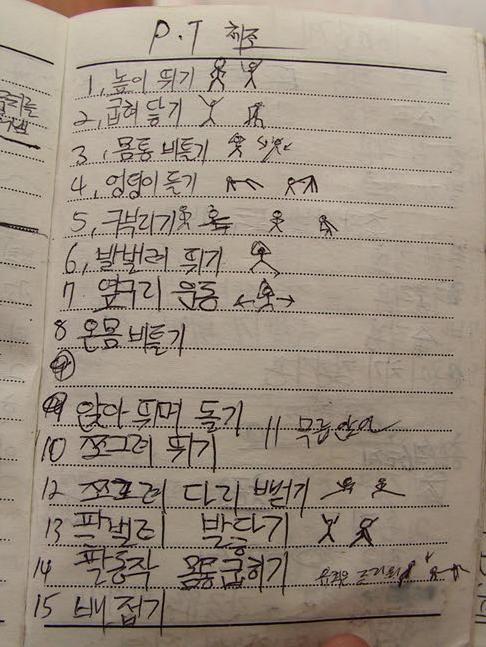 P.T 체조
1, 높이 뛰기
2, 굽혀 닿기
3, 몸통 비틀기
4, 엉덩이 들기
5, 구부리기
6, 발벌려 뛰기
7 옆구리 운동
8 온몸 비틀기
9
9 앉아 뛰며 돌기
10 쪼그려 뛰기 11 무릎
12 쪼그려 다리 뻗기
13 팔벌려 받타기
14 팔동작 몸통굽히기
15 배 접기